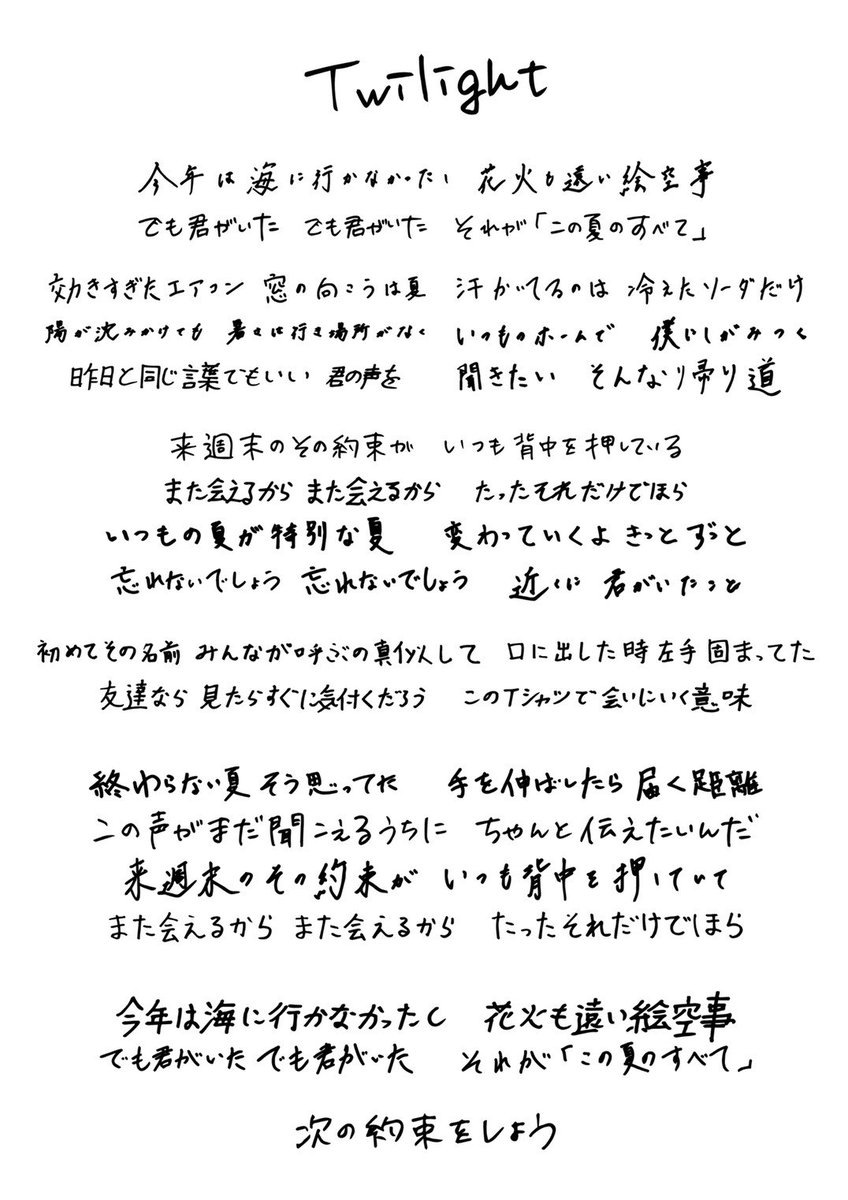 Twilight
今年は海に行かなかったし 花火も遠い絵空事
でも君がいた でも君がいた それが「この夏のすべて」
効きすぎたエアコン 窓の向こうは夏 汗かいてるのは 冷えたソーダだけ
陽が沈みかけても 暑さは行き場所がなく いつものホームで 僕にしがみつく
昨日と同じ言葉でもいい 君の声を 聞きたい そんな帰り道
来週末のその約束が いつも背中を押している
また会えるから また会えるから たったそれだけでほら
いつもの夏が特別な夏 変わっていくよ きっと ずっと
忘れないでしょう 忘れないでしょう 近くに 君がいたこと
初めてその名前 みんなが呼ぶの真似して 口に出した時 左手 固まってた
友達なら 見たらすぐに気付くだろう このTシャツで 会いにいく意味
終わらない夏 そう思ってた 手を伸ばしたら 届く距離
この声がまだ聞こえるうちに ちゃんと伝えたいんだ
来週末のその約束が いつも背中を押していて
また会えるから また会えるから たったそれだけでほら
今年は海に行かなかったし 花火も遠い絵空事
でも君がいた でも君がいた それが「この夏のすべて」
次の約束をしよう